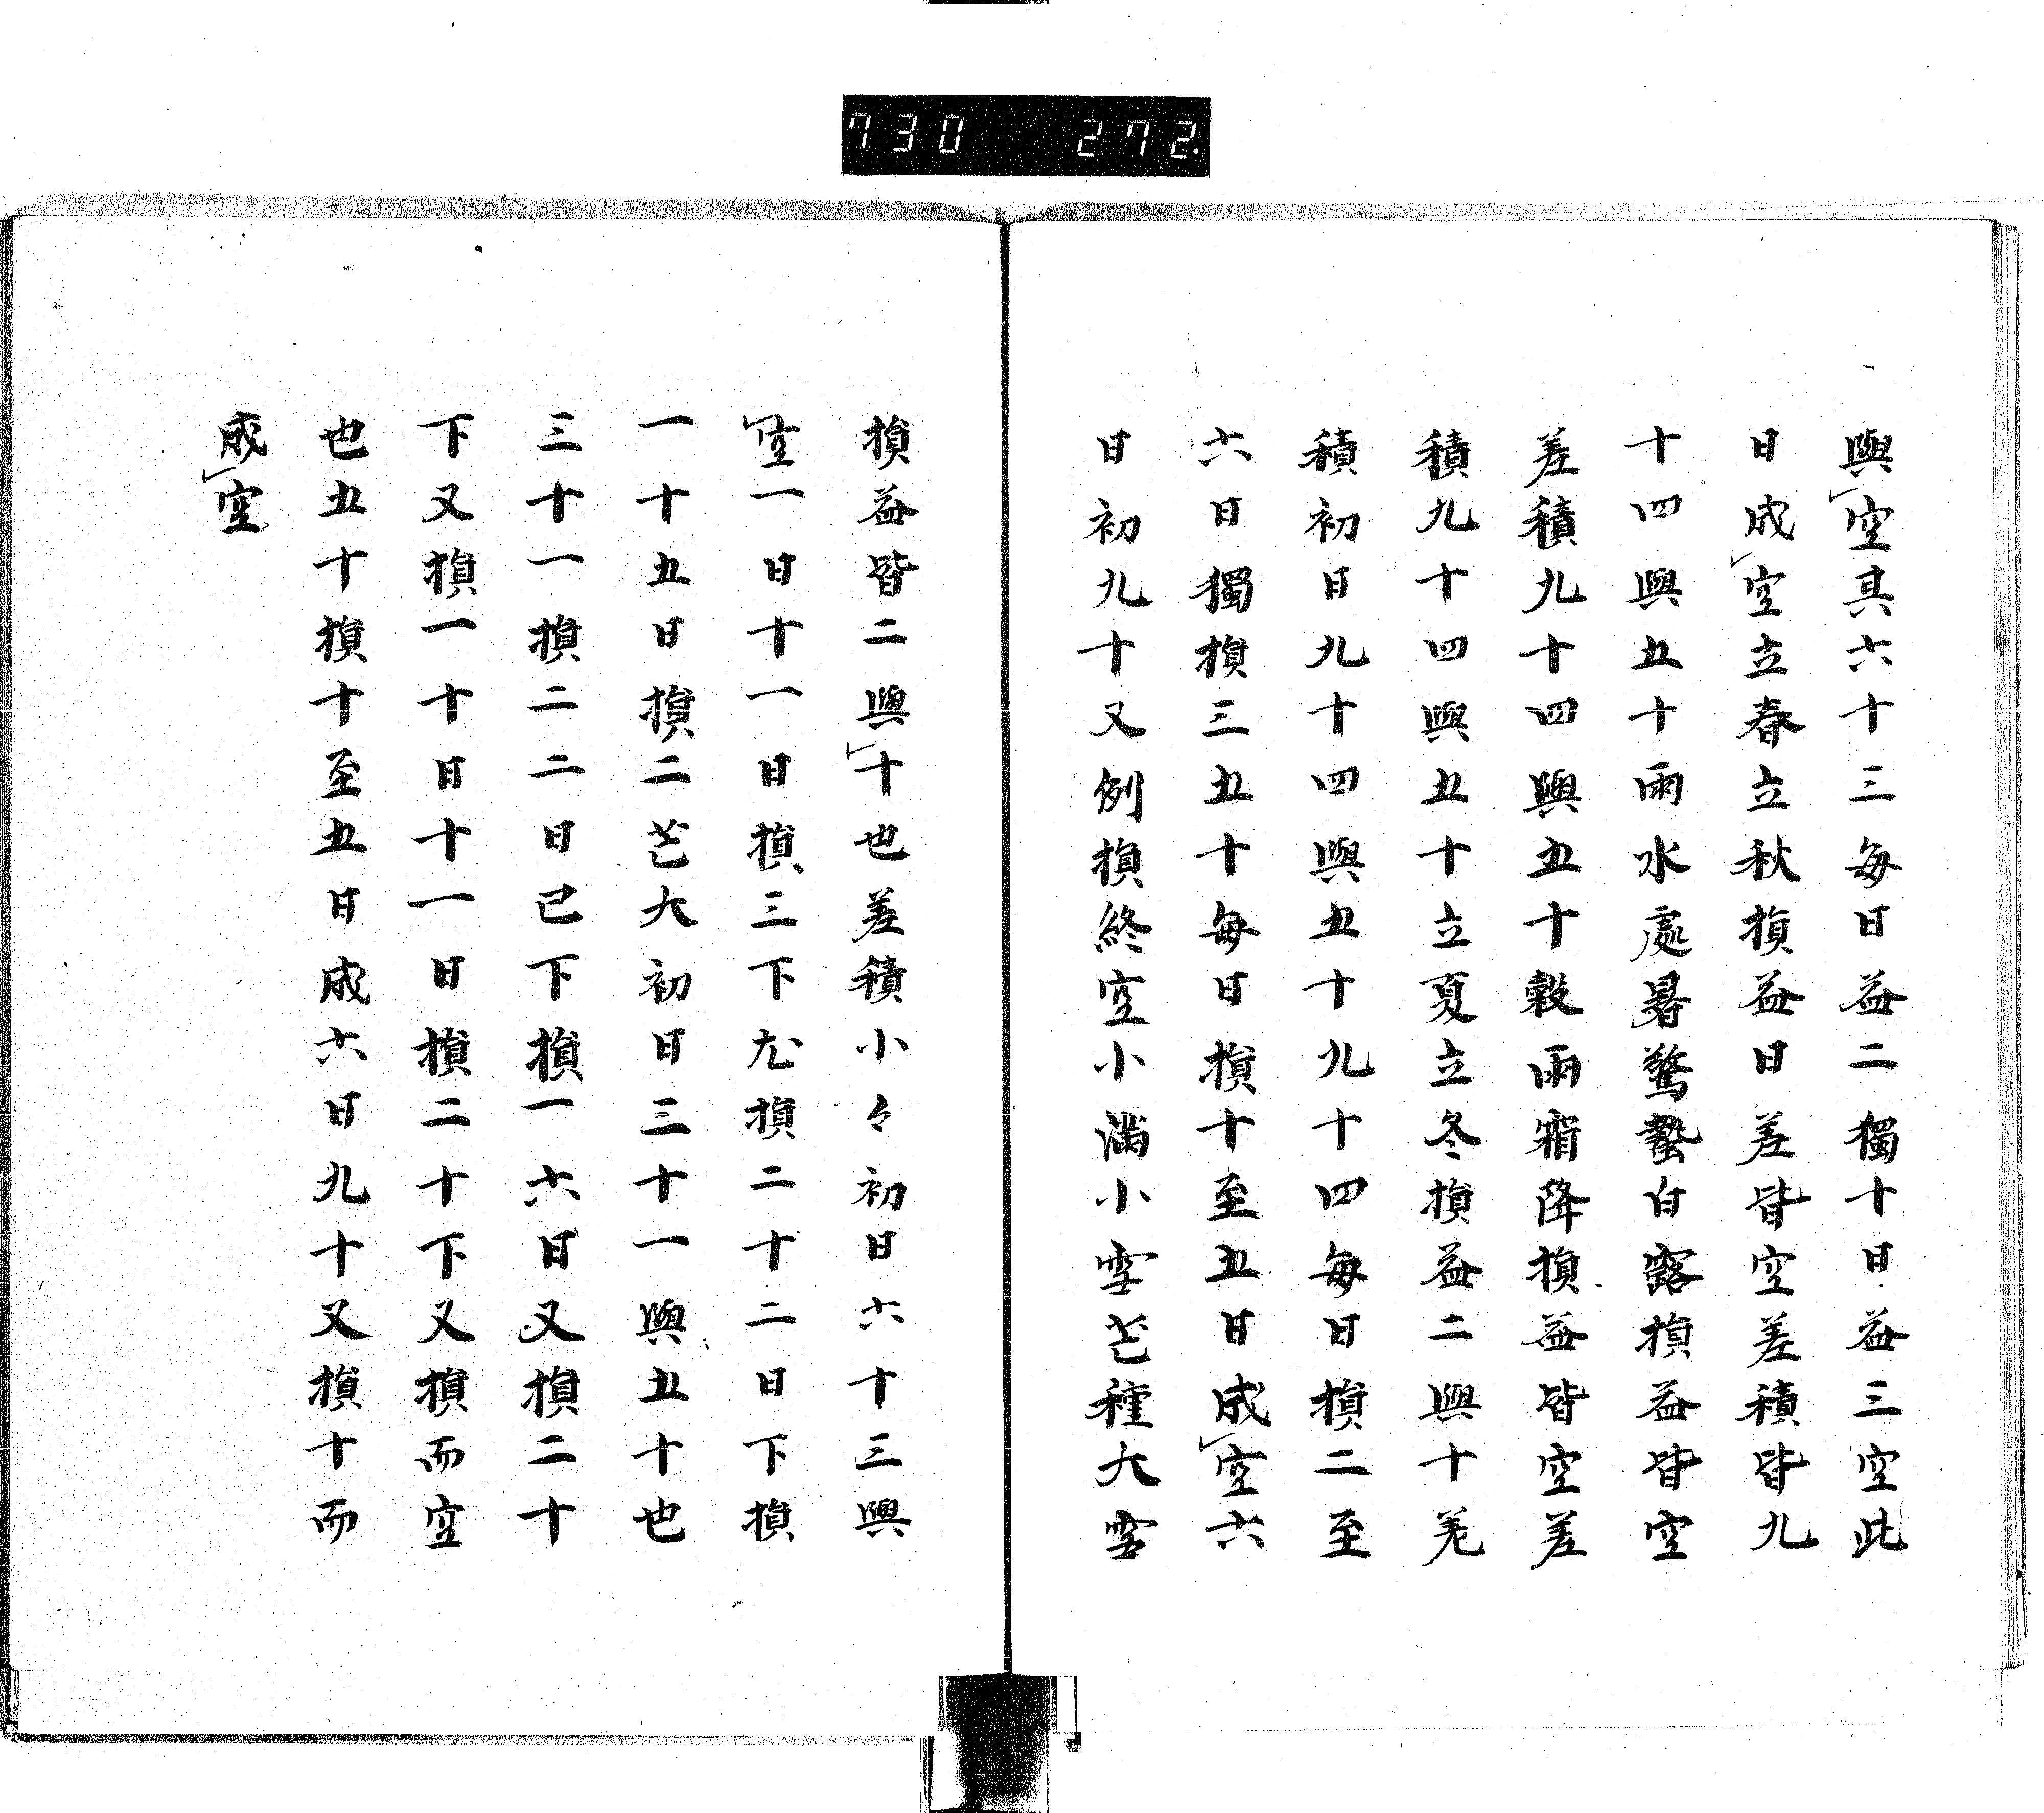 730 272.
與空其六十三每日益二獨十日益三空此
日成空立春立秋損益日差皆空差積皆九
十四與五十雨水處暑驚蟄白露損益皆空
差積九十四與五十穀雨霜降損益皆空差
積九十四與五十立夏立冬損益二與十差
積初日九十四與五十九十四每日損二至
六日獨損三五十每日損十至五日成空六
日初九十又例損終空小滿小雪芒種大雪
損益皆二與十也差積小々初日六十三與
空一日十一日損三下尤損二十二日下損
一十五日損二芒大初日三十一與五十也
三十一損二二日已下損一六日又損二十
下又損一十日十一日損二十下又損而空
也五十損十至五日成六日九十又損十而
成空